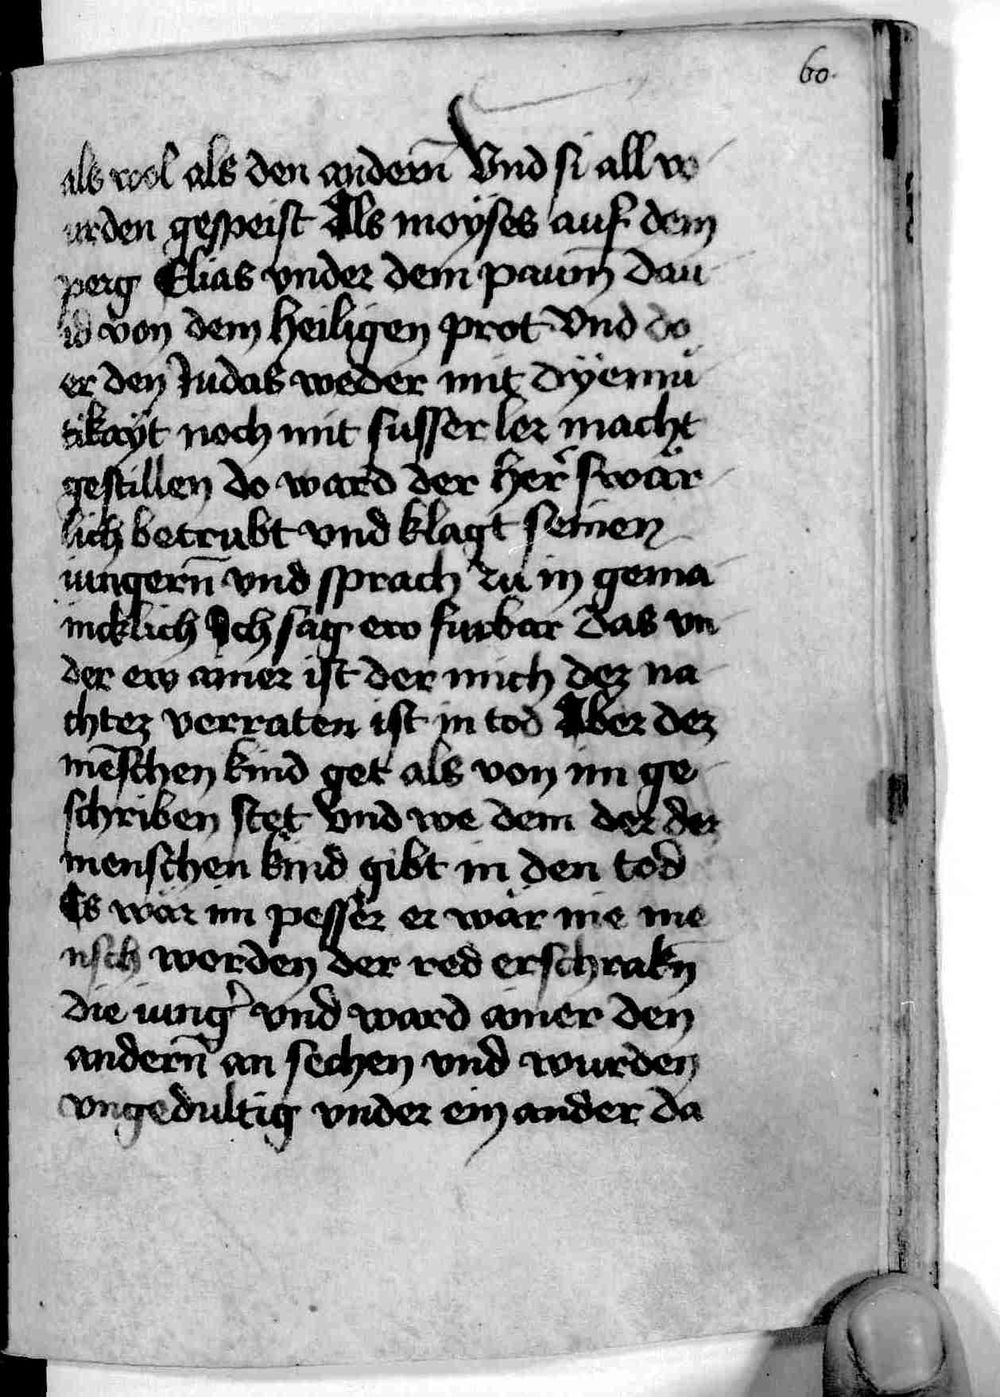 60.
als wol als den andern̄ Vnd si all w
urden gespeist Als moyses auf dem
perg Elias vnder dem paum̄ Dau
id von dem heiligen prot Vnd do
er den Judas weder mit dÿemu
tikaÿt noch mit susser ler macht
gestillen do ward der her̄ swär
lich betrubt vnd klagt seinen
iungern̄ vnd sprach zu in gema
incklich Ich sag ew furbar das vn
der ew ainer ist der mich dez na
chtez verraten ist in tod Aber dez
mēschen kind get als von im ge
schriben stet Vnd we dem der dez
menschen kind gibt in den tod
Es wär im pesser er wär nie me
nsch worden der red erschrakn̄
die iung̛ vnd ward ainer den
andern̄ an sechen vnd wurden
vngedultig vnder ein ander da